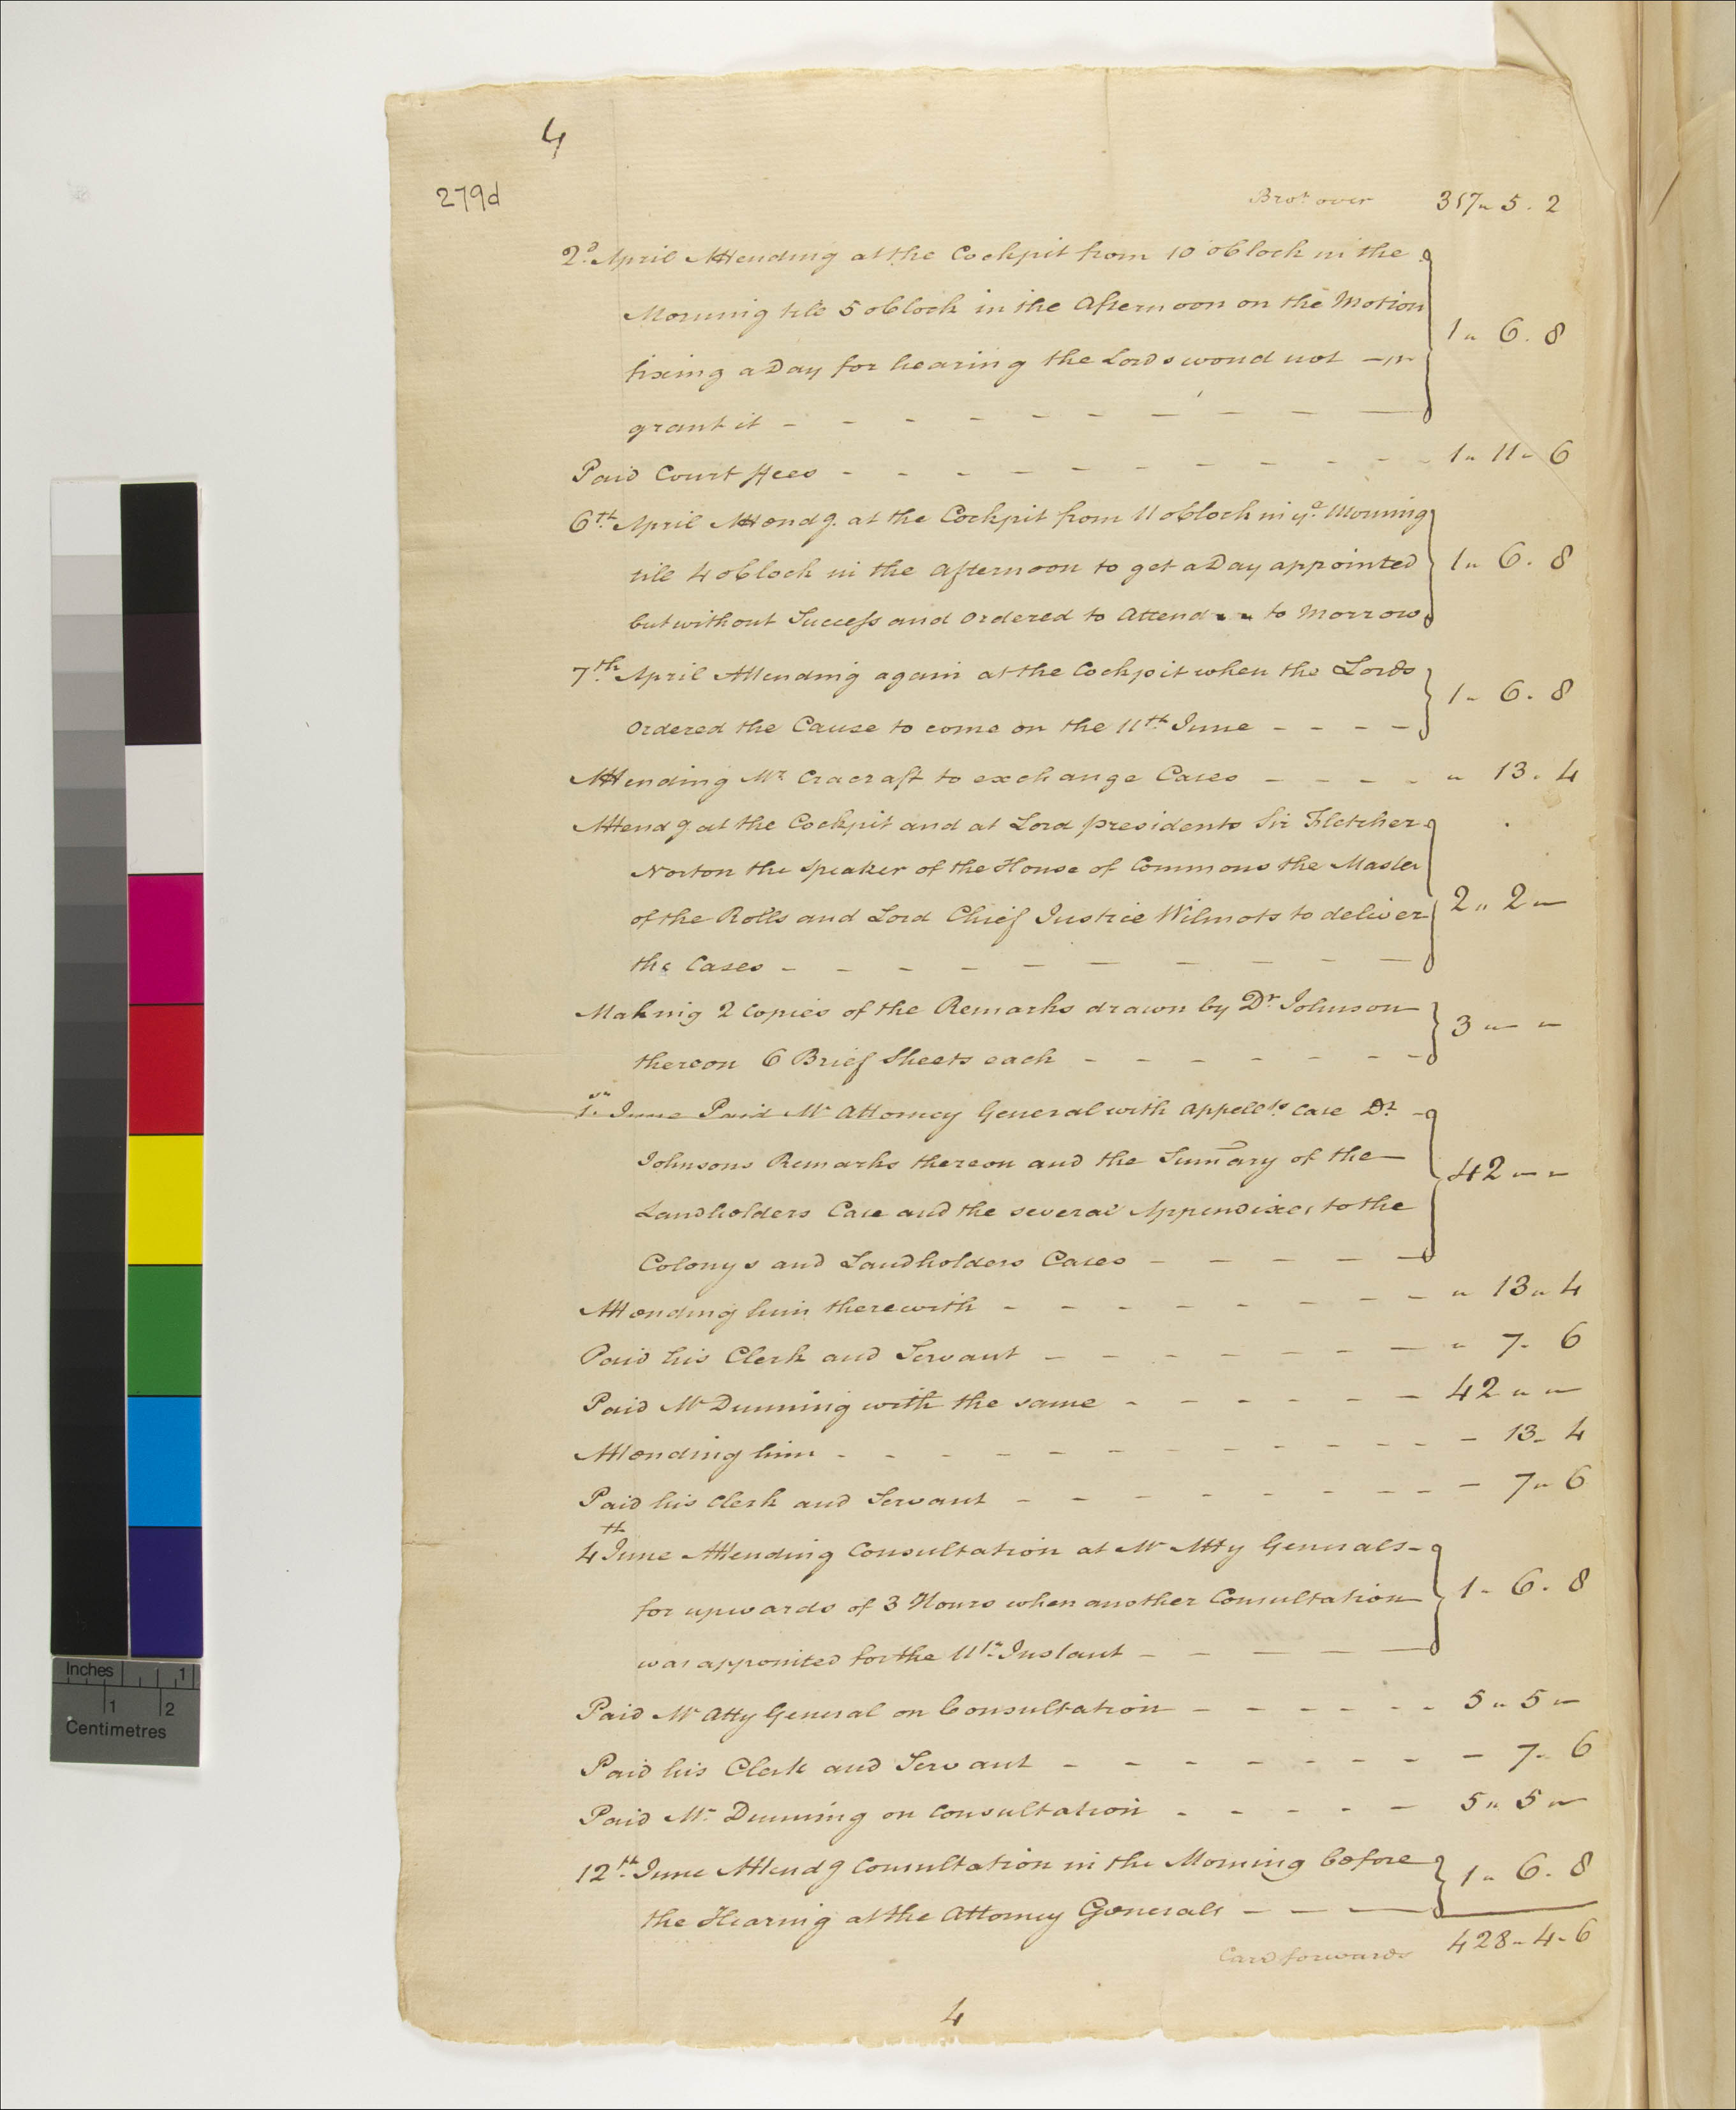 4
279d
Brot over 317 " 5 . 2
2d April Attending at the Cockpit from 10 oClock in the
Morning till 5 oClock in the Afternoon on the Motion
fixing a Day for hearing the Lords woud not 1 " 6 . 8
grant it
Paid Court ffees 1 " 11 - 6
6th April Attendg. at the Cockpit from 11 oClock in ye Morning
till 4 oClock in the Afternoon to get a Day appointed 1 " 6 . 8
but without Success and Ordered to Attend to Morrow
7th April Attending again at the Cockpit when the Lords
Ordered the Cause to come on the 11th June 1 - 6 . 8
Attending Mr Cracraft to exchange Cases " 13 . 4
Attendg at the Cockpit and at Lord presidents Sir Fletcher
Norton the Speaker of the House of Commons the Master
of the Rolls and Lord Chief Justice Wilmots to deliver 2 " 2 "
the Cases
Making 2 Copies of the Remarks drawn by Dr Johnson
thereon 6 Brief Sheets each 3 " "
1st June Paid Mr Attorney General with Appellts Case Dr
Johnsons Remarks thereon and the Sumary of the
Landholders Case and the several Appendixes to the 42 " "
Colonys and Landholders Cases
Attending him therewith " 13 " 4
Paid his Clerk and Servant " 7 - 6
Paid Mr Dunning with the same 42 " "
Attending him - 13 - 4
Paid his Clerk and Servant - 7 " 6
4th June Attending Consultation at Mr Atty Generals
for upwards of 3 Hours when another Consultation 1 - 6 . 8
was appointed for the 11th Instant
Paid Mr Atty General on Consultation 5 " 5 "
Paid his Clerk and Servant - 7 - 6
Paid Mr Dunning on Consultation 5 " 5 "
12th June Attendg Consultation in the Morning before
the Hearing at the Attorney Generals 1 " 6 . 8
Card forwards 428 - 4 - 6
4
Inches 1
1 2
Centimetres